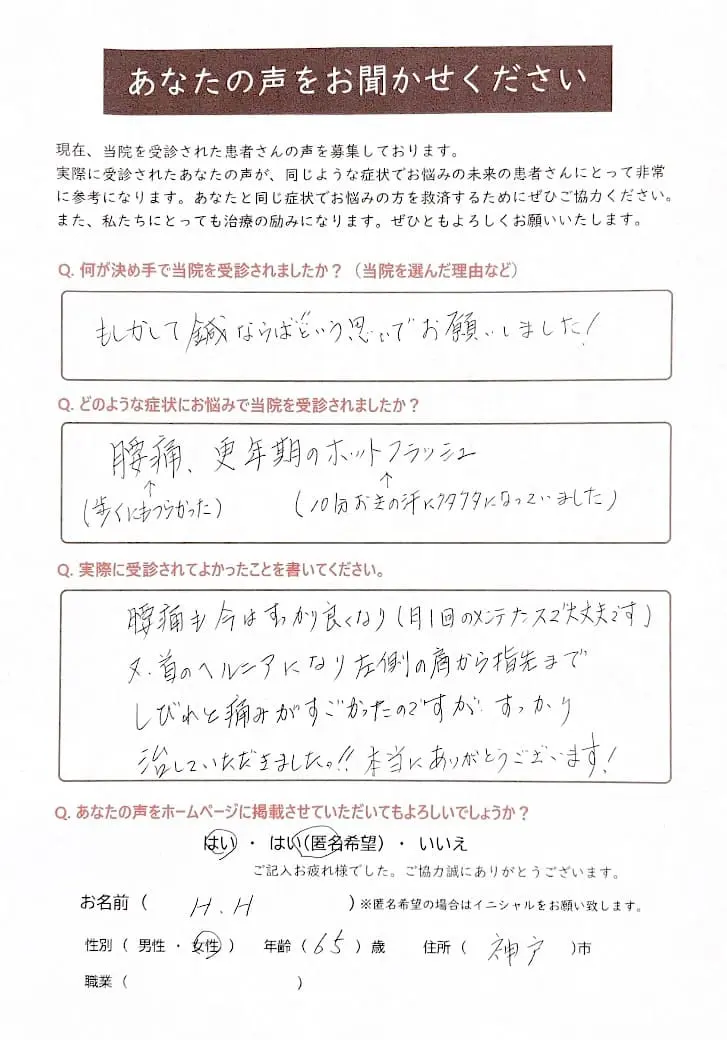 あなたの声をお聞かせください
現在、当院を受診された患者さんの声を募集しております。
実際に受診されたあなたの声が、同じような症状でお悩みの未来の患者さんにとって非常
に参考になります。あなたと同じ症状でお悩みの方を救済するためにぜひご協力ください。
また、私たちにとっても治療の励みになります。ぜひともよろしくお願いいたします。
Q. 何が決め手で当院を受診されましたか？（当院を選んだ理由など）
もしかして鍼ならば"という思いでお願いしました！
Q. どのような症状にお悩みで当院を受診されましたか？
腰痛、更年期のホットフラッシュ
↑ ↑
(歩くにもつらかった) (10分おきの汗にクタクタになっていました)
Q. 実際に受診されてよかったことを書いてください。
腰痛も今はすっかり良くなり(月1回のメンテナンスで大丈夫です)
又、首のヘルニアになり左側の肩から指先まで
しびれと痛みがすごかったのですが、すっかり
治していただきました。!! 本当にありがとうございます！
Q. あなたの声をホームページに掲載させていただいてもよろしいでしょうか？
はい ・ はい(匿名希望) ・ いいえ
ご記入お疲れ様でした。ご協力誠にありがとうございます。
お名前 ( H.H ) ※匿名希望の場合はイニシャルをお願い致します。
性別 ( 男性 ・ 女性 ) 年齢 ( 65 ) 歳 住所 ( 神戸 )市
職業 ( )